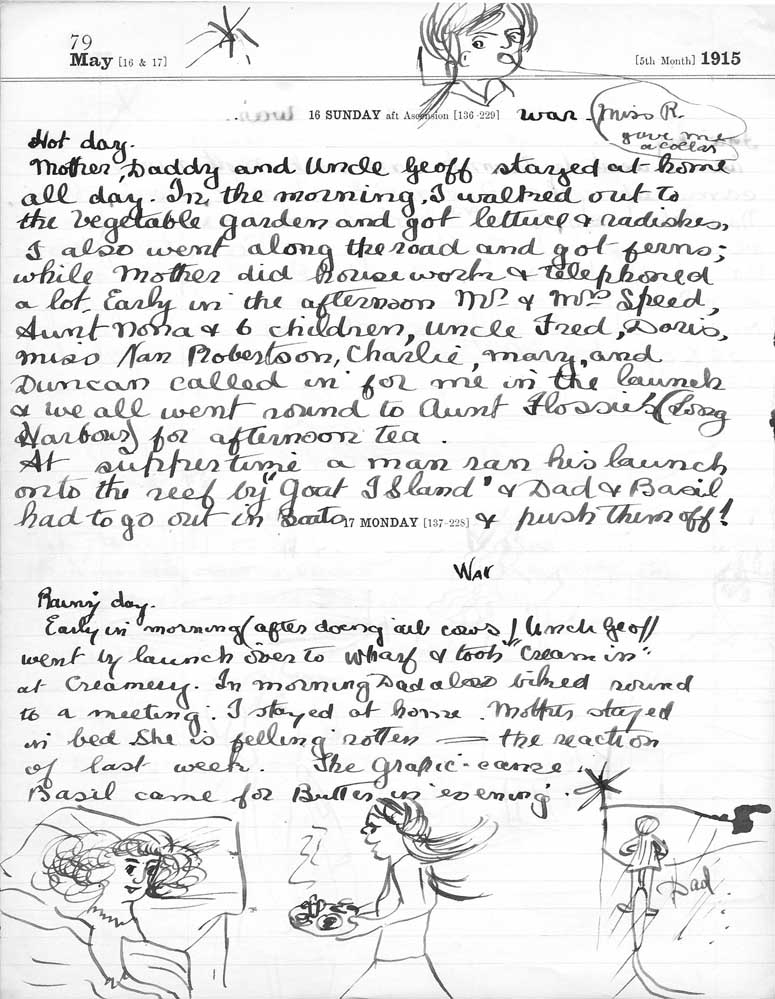 79
May [16 & 17]
[5th Month] 1915
16 SUNDAY aft Ascension [136-229] War.
Miss R.
gave me
a collar
Hot day.
Mother, Daddy and Uncle Geoff stayed at home
all day. In the morning, I walked out to
the vegetable garden and got lettuce & radishes,
I also went along the road and got ferns;
while Mother did housework & telephoned
a lot. Early in the afternoon Mr & Mrs Speed,
Aunt Nona & 6 children, Uncle Fred, Doris,
Miss Nan Robertson, Charlie, Mary, and
Duncan called in for me in the launch
& we all went round to Aunt Flossie's (Long
Harbour) for afternoon tea.
At suppertime a man ran his launch
onto the reef by "Goat Island" & Dad & Basil
had to go out in & push them off!
17 MONDAY [137-228]
War
Rainy day.
Early in morning (after doing cows) Uncle Geoff
went by launch over to wharf & took "Cream in"
at Creamery. In morning Dad also biked round
to a meeting. I stayed at home. Mother stayed
in bed She is felling rotten — the reaction
of last week. The Grapic came.
Basil came for Butter in evening.
Dad